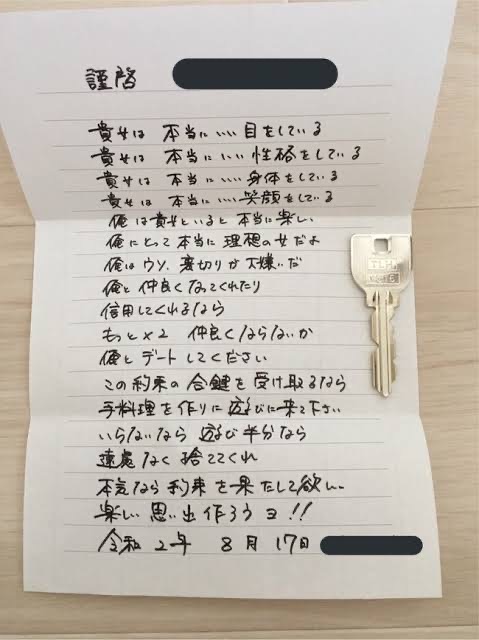 謹啓
貴女は 本当にいい目をしている
貴女は 本当にいい性格をしている
貴女は 本当にいい身体をしている
貴女は 本当にいい笑顔をしている
俺は貴女といると本当に楽しい
俺にとって本当に理想の女だよ
俺はウソ、裏切りが大嫌いだ
俺と仲良くなってくれたり
信用してくれるなら
もっと×2 仲良くならないか
俺とデートしてください
この約束の合鍵を受け取るなら
手料理を作りに遊びに来て下さい
いらないなら 遊び半分なら
遠慮なく捨ててくれ
本気なら約束を果たして欲しい
楽しい思い出作ろうヨ!!
令和 2年 8月 17日